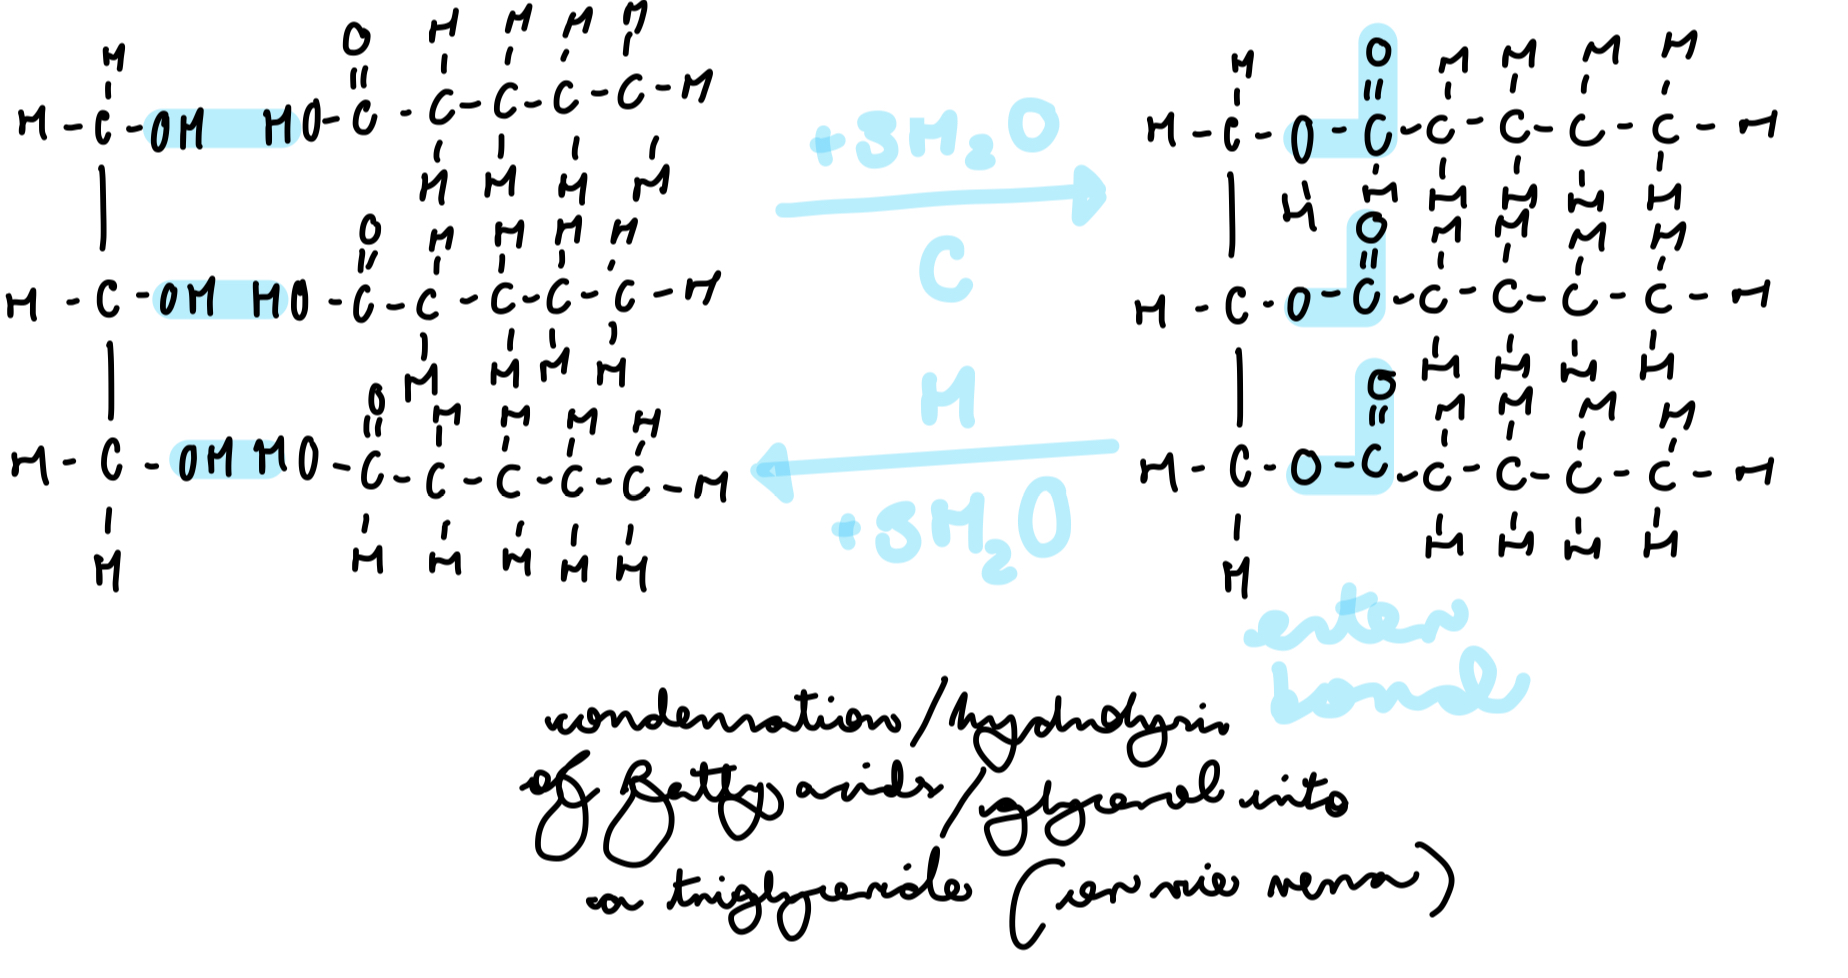 H H H H H
O
H - C - OH HO - C - C - C - C - C - H
H H H H
O H H H H
H - C - OH HO - C - C - C - C - C - H
H H H H
O H H H H
H - C - OH HO - C - C - C - C - C - H
H H H H H H
+3H₂O
C
H
+3H₂O
H O H H H H
H - C - O - C - C - C - C - C - H
H H H H H H
O H H H H
H - C - O - C - C - C - C - C - H
H H H H
O H H H H
H - C - O - C - C - C - C - C - H
H H H H
H
ester
bond
condensation/hydrolysis
of fatty acids/glycerol into
a triglyceride (or vice versa)